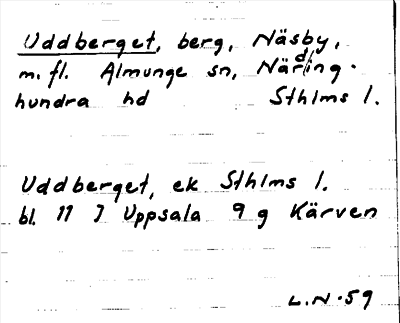 Uddberget, berg, Näsby,
m. fl. Almunge sn, Närding-
hundra hd Sthlms l.
Uddberget, ek Sthlms l.
bl. 11 I Uppsala 9 g Kärven
L.N-59